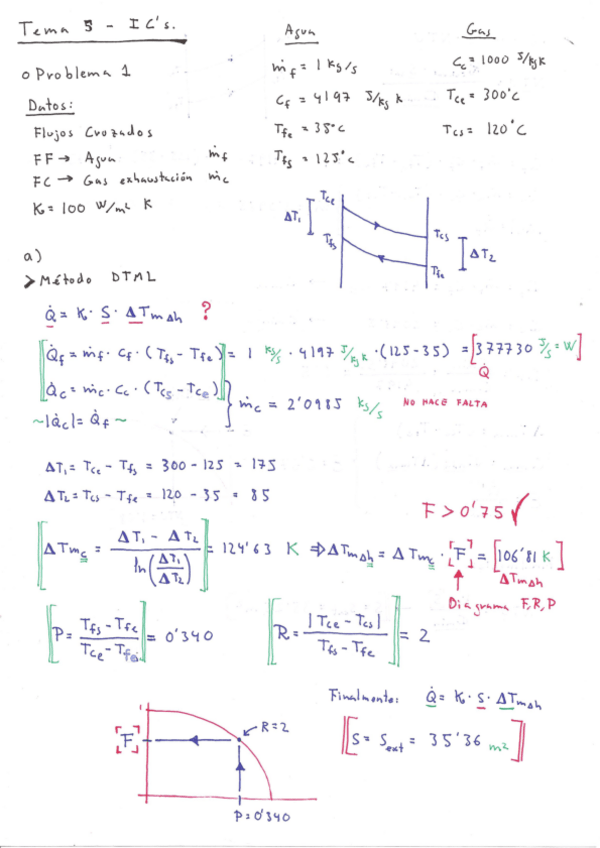 Tema 5 - IC's.
Agua
Gas
o Problema 1
ṁf = 1 kg/s
Cc = 1000 J/kg K
Datos:
Cf = 4197 J/kg K
Tce = 300°C
Flujos Cruzados
Tfe = 35°C
Tcs = 120°C
FF → Agua ṁf
Tfs = 125°C
FC → Gas exhaustación ṁc
K = 100 W/m² K
Tce
ΔT1
Tfs
Tcs
ΔT2
Tfe
a)
> Método DTML
Q̇ = K · S · ΔTmΔh ?
Q̇f = ṁf · Cf · (Tfs - Tfe) = 1 kg/s · 4197 J/kg K · (125-35) = [377730 J/s = W]
Q̇
Q̇c = ṁc · Cc · (Tcs - Tce) } ṁc = 2'0985 kg/s NO HACE FALTA
~|Q̇c| = Q̇f ~
ΔT1 = Tce - Tfs = 300 - 125 = 175
ΔT2 = Tcs - Tfe = 120 - 35 = 85
F > 0'75 ✓
ΔTmc = (ΔT1 - ΔT2) / ln(ΔT1/ΔT2) = 124'63 K ⇒ ΔTmΔh = ΔTmc · [F] = [106'81 K]
ΔTmΔh
Diagrama F,R,P
P = (Tfs - Tfe) / (Tce - Tfe) = 0'340
R = |Tce - Tcs| / (Tfs - Tfe) = 2
Finalmente: Q̇ = K · S · ΔTmΔh
S = Sext = 35'36 m²
1
[F]
R=2
P=0'340